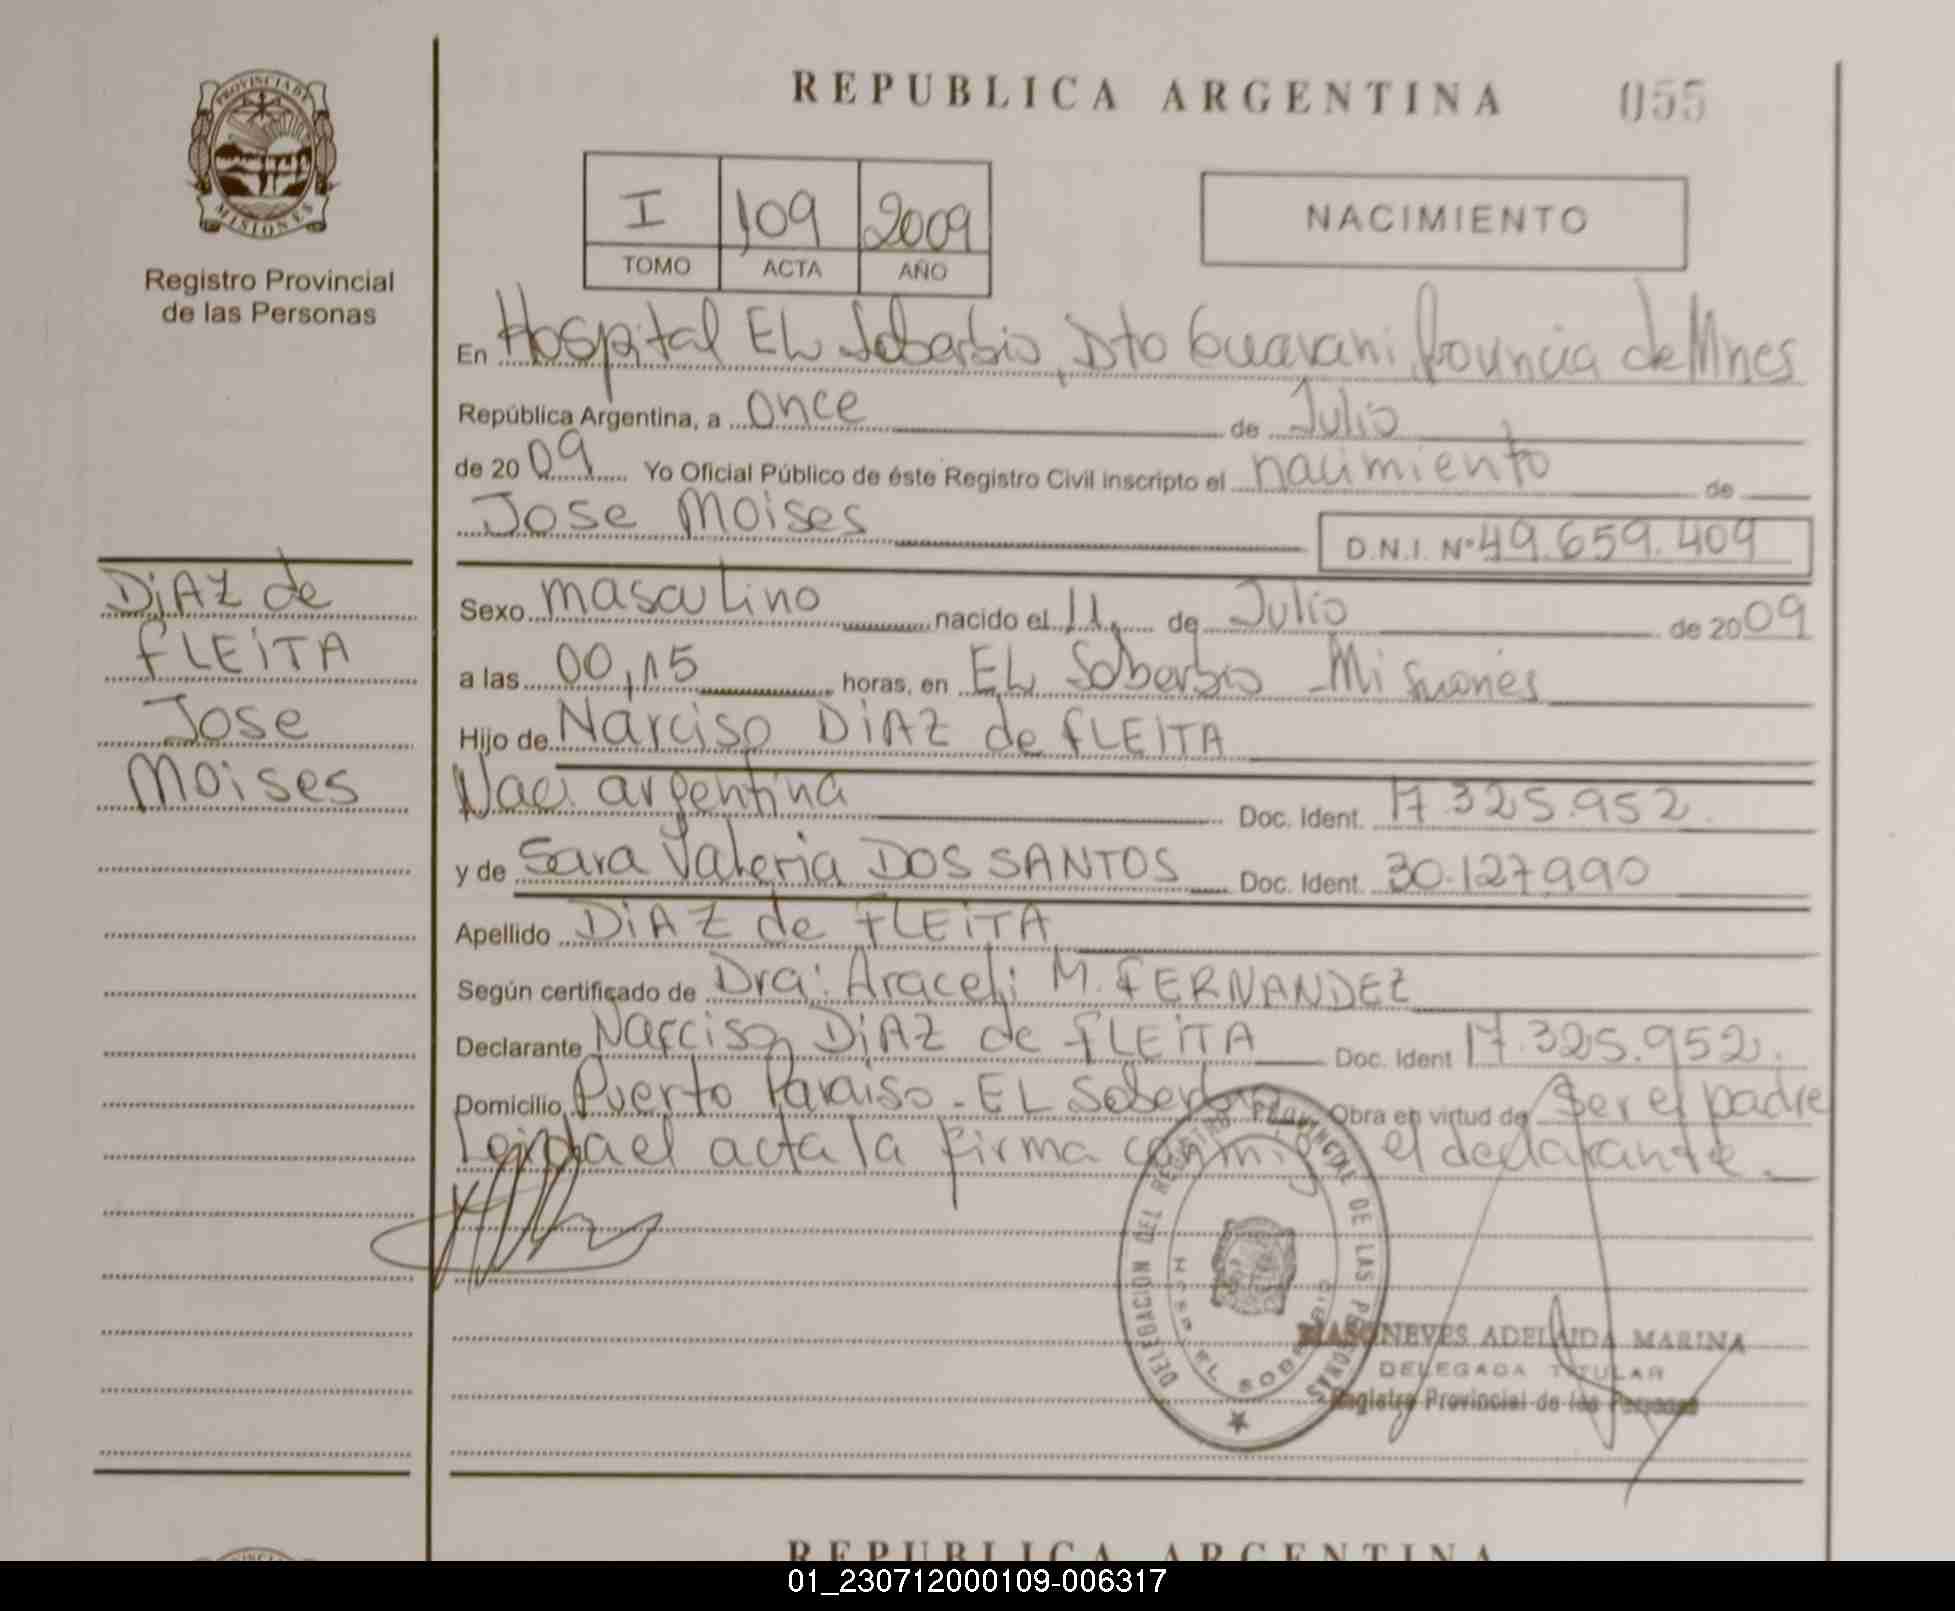 PROVINCIA DE
MISIONES
Registro Provincial
de las Personas
REPUBLICA ARGENTINA 055
I 109 2009
TOMO ACTA AÑO
NACIMIENTO
En Hospital EL Soberbio, Dto Guarani, Provincia de Mnes
República Argentina, a once de Julio
de 20 09 Yo Oficial Público de éste Registro Civil inscripto el nacimiento de
Jose Moises D.N.I. Nº 49.659.409
DiAZ de
FLEiTA
Jose
Moises
Sexo masculino nacido el 11 de Julio de 20 09
a las 00,15 horas, en EL Soberbio - Misiones
Hijo de Narciso DiAZ de FLEITA
Nac. argentina Doc. Ident. 17.325.952.
y de Sara Valeria DOS SANTOS Doc. Ident. 30.127.990
Apellido DiAZ de FLEiTA
Según certificado de Dra: Araceli M. FERNANDEZ
Declarante Narciso DiAZ de FLEiTA Doc. Ident 17.325.952.
Domicilio Puerto Paraiso - EL Soberbio Obra en virtud de Ser el padre
Leida el acta la firma conmigo el declarante.-
DELEGACION DEL REGISTRO PROVINCIAL DE LAS PERSONAS
HOSP. EL SOBERBIO
NEVES ADELAIDA MARINA
DELEGADA TITULAR
Registro Provincial de las Personas
REPUBLICA ARGENTINA
01_230712000109-006317